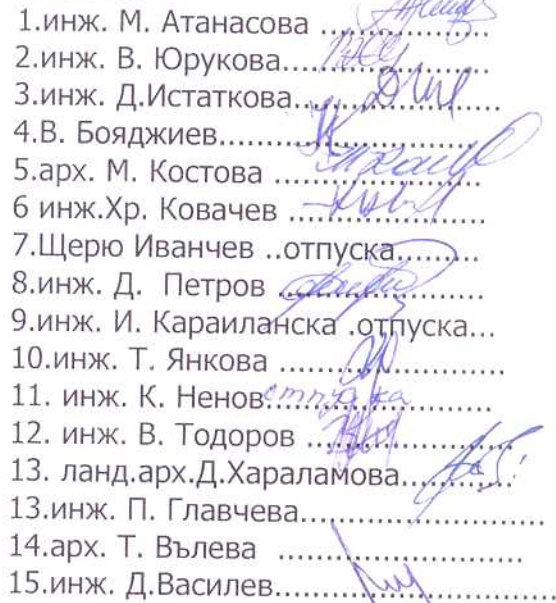 1.инж. М. Атанасова ................
2.инж. В. Юрукова....................
3.инж. Д.Истаткова....................
4.В. Бояджиев..........................
5.арх. М. Костова ....................
6 инж.Хр. Ковачев ...................
7.Щерю Иванчев ..отпуска........
8.инж. Д. Петров ....................
9.инж. И. Караиланска .отпуска...
10.инж. Т. Янкова ....................
11. инж. К. Ненов отпуска ..........
12. инж. В. Тодоров ..................
13. ланд.арх.Д.Хараламова...........
13.инж. П. Главчева.......................
14.арх. Т. Вълева .......................
15.инж. Д.Василев..........................